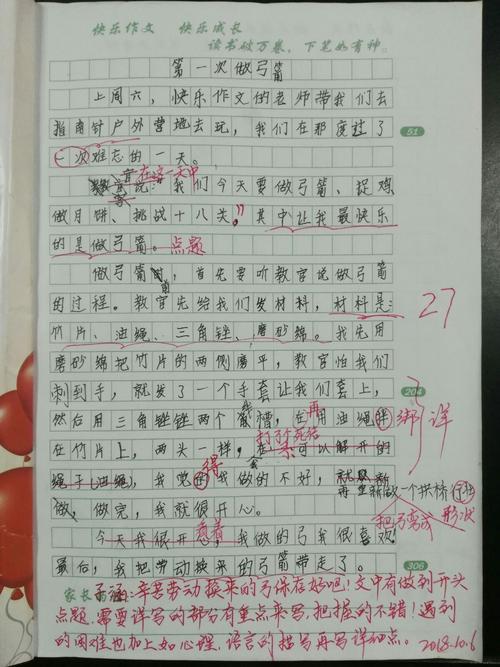 快乐作文 快乐成长
读书破万卷，下笔如有神。
第一次做弓箭
上周六，快乐作文的老师带我们去
指南针户外营地去玩，我们在那度过了
51
一次难忘的一天。
在这一天中
说：我们今天要做弓箭、捉鸡
做月饼、挑战十八关。”其中让我最快乐
的是做弓箭。点题
做弓箭时，首先要听教官说做弓箭
的过程。教官先给我们发材料，材料是：
27
竹片、油绳、三角锉、磨砂绵。我先用
磨砂绵把竹片的两侧磨平，教官怕我们
刺到手，就发了一个手套让我们套上，
204
然后用三角锉锉两个槽，再用油绳
绑 详
在竹片上，两头一样，
打个死结
可以解开的
绳子（油绳），我觉得我做的不好，
再重新做一个拱桥
形状
把弓弯成
做，做完，我就很开心。
今天我很开心，我做的弓我很喜欢
最后，我把劳动换来的弓箭带走了。
306
家长
子涵：辛苦劳动换来的弓保存好吧！文中有做到开头
点题，需要详写的部分有重点来写，把握的不错！遇到
的困难也加上如心理、语言的描写再写详细点。
2018.10.6